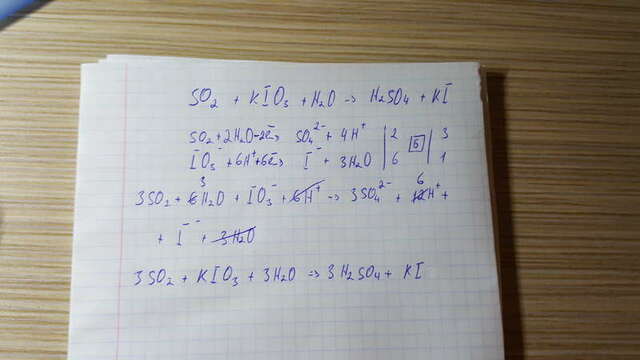 SO₂ + KIO₃ + H₂O → H₂SO₄ + KI
SO₂ + 2H₂O - 2e → SO₄²⁻ + 4H⁺ | 2 | 6 | 3
IO₃⁻ + 6H⁺ + 6e → I⁻ + 3H₂O | 6 | 1
3SO₂ + 6 3 H₂O + IO₃⁻ + 6H⁺ → 3SO₄²⁻ + 12 6 H⁺ +
+ I⁻ + 3H₂O
3SO₂ + KIO₃ + 3H₂O → 3H₂SO₄ + KI